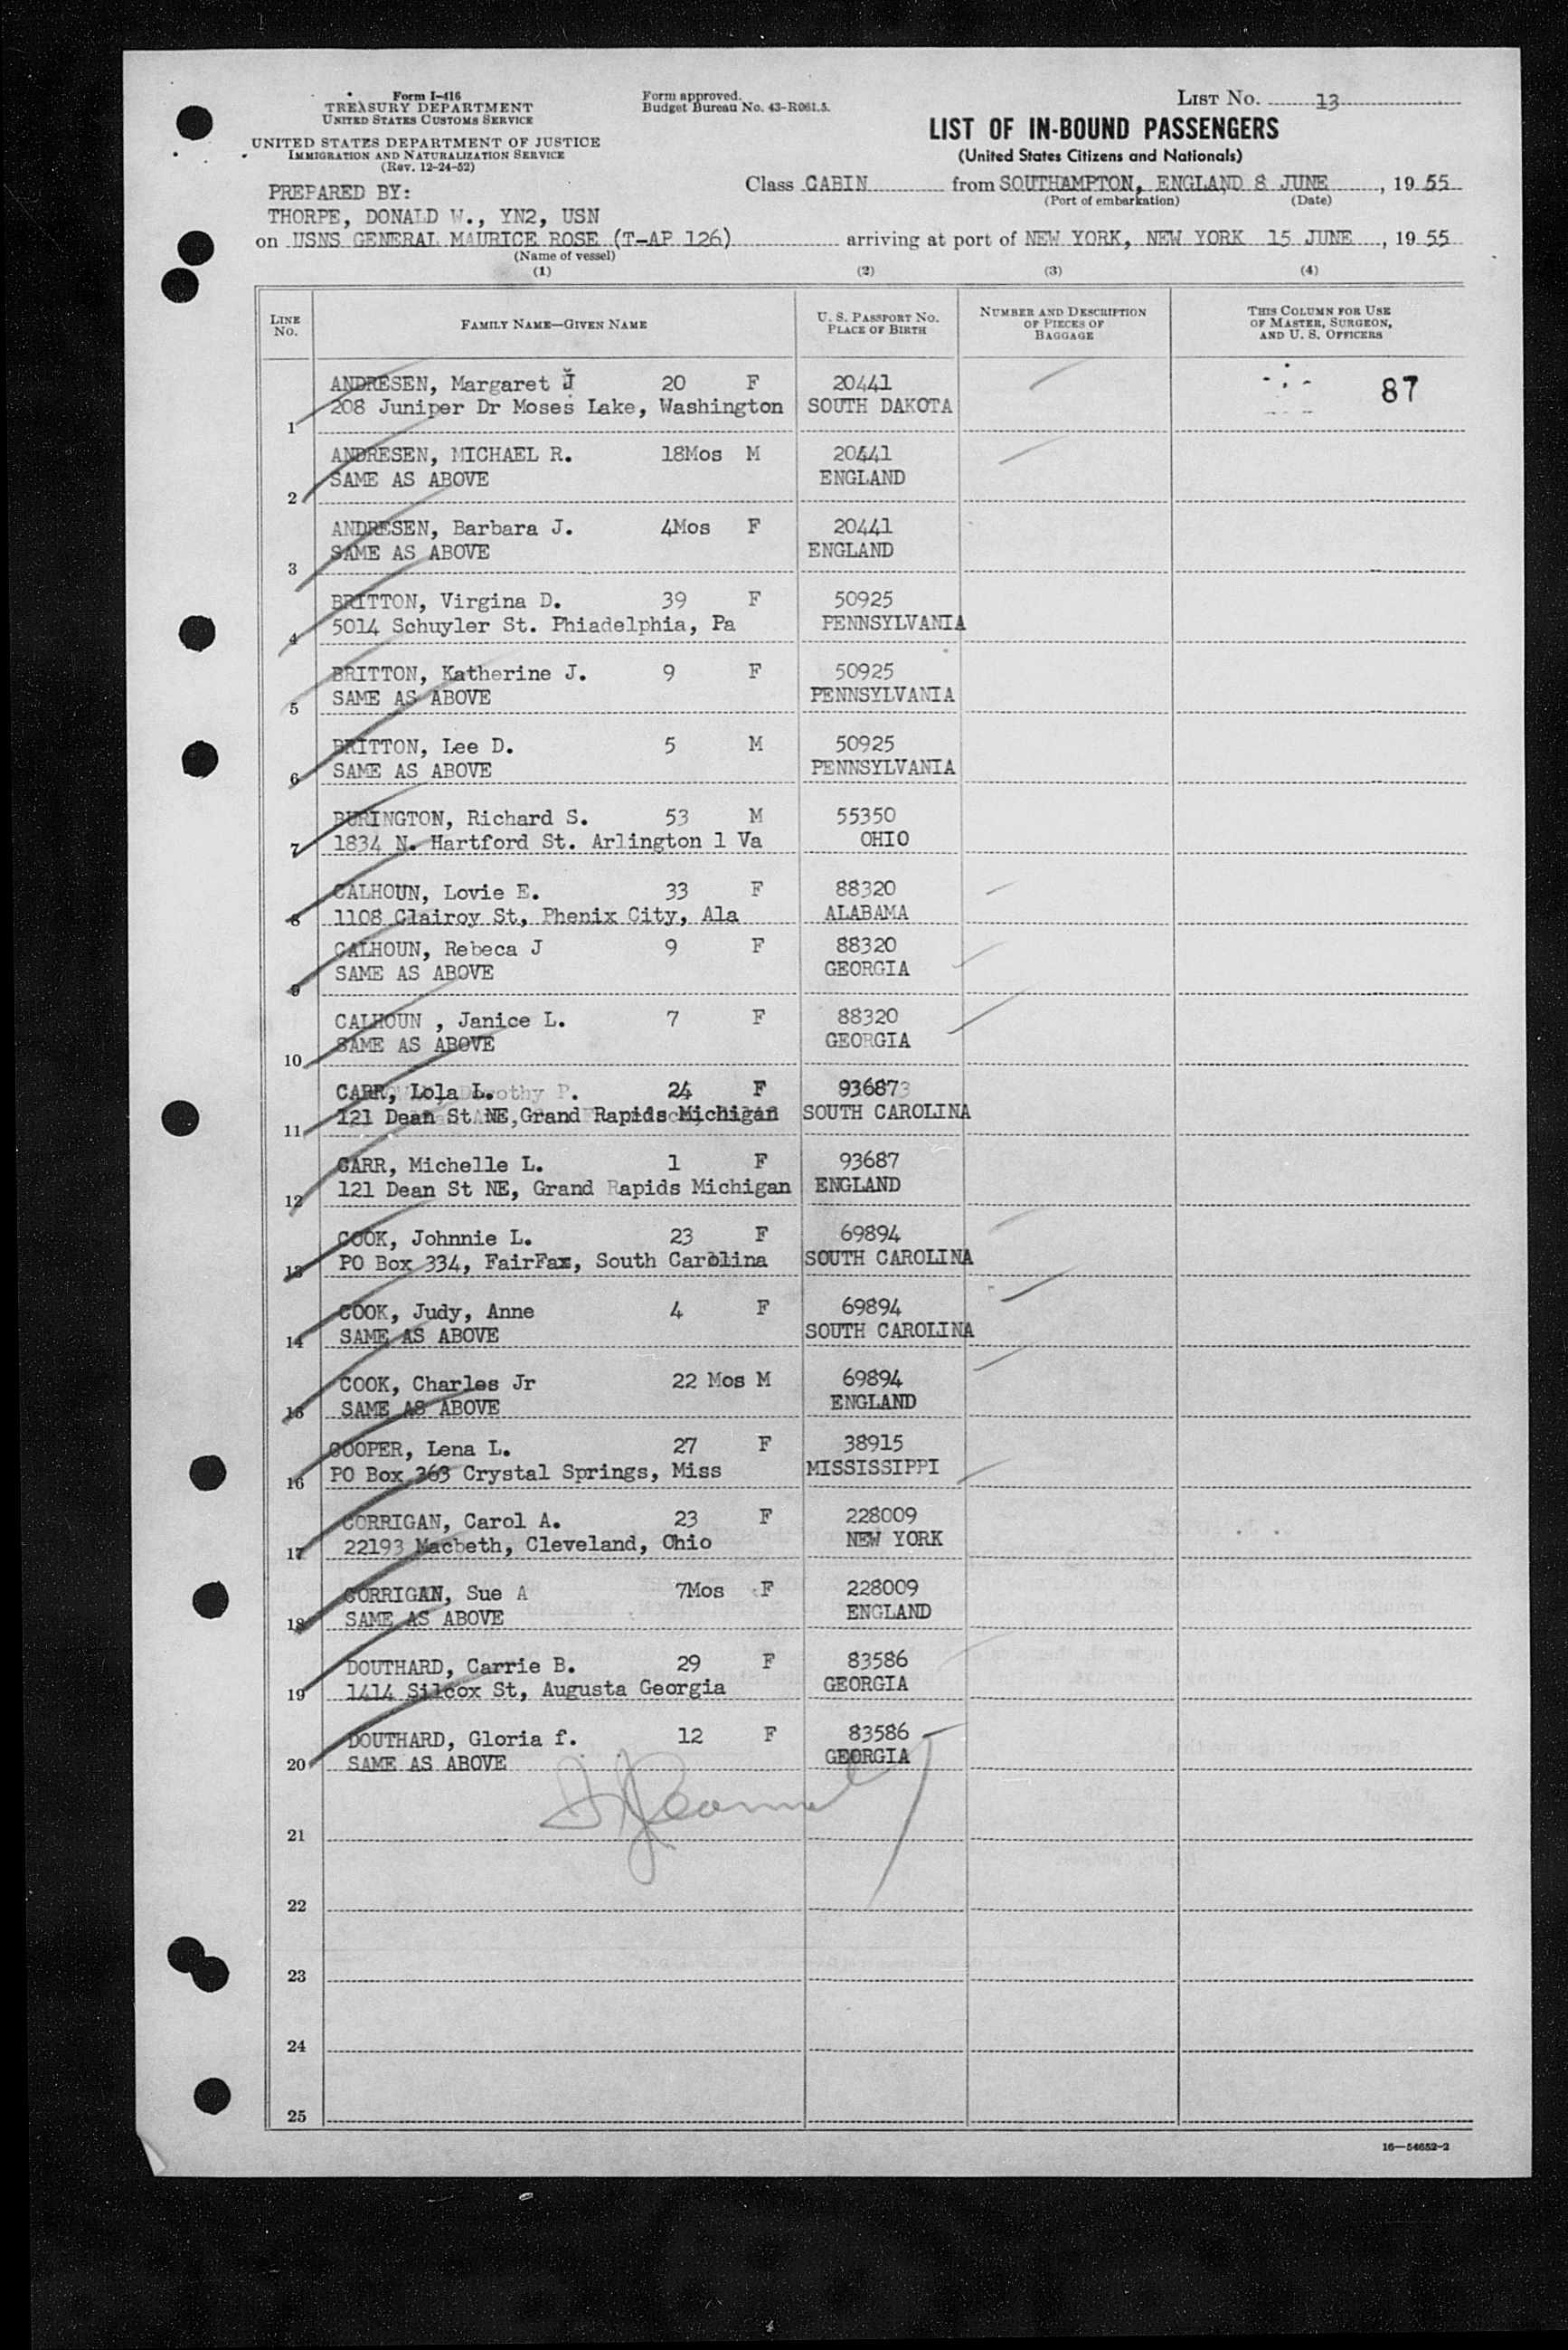 Form I-416
TREASURY DEPARTMENT
UNITED STATES CUSTOMS SERVICE
UNITED STATES DEPARTMENT OF JUSTICE
IMMIGRATION AND NATURALIZATION SERVICE
(Rev. 12-24-52)
Form approved.
Budget Bureau No. 43-R061.5.
LIST NO. 13
LIST OF IN-BOUND PASSENGERS
(United States Citizens and Nationals)
PREPARED BY:
THORPE, DONALD W., YN2, USN
Class CABIN from SOUTHAMPTON, ENGLAND 8 JUNE, 1955
(Port of embarkation) (Date)
on USNS GENERAL MAURICE ROSE (T-AP 126) arriving at port of NEW YORK, NEW YORK 15 JUNE, 1955
(Name of vessel)
(1) (2) (3) (4)
LINE NO. FAMILY NAME—GIVEN NAME U. S. PASSPORT NO. PLACE OF BIRTH NUMBER AND DESCRIPTION OF PIECES OF BAGGAGE THIS COLUMN FOR USE OF MASTER, SURGEON, AND U. S. OFFICERS
ANDRESEN, Margaret J 20 F 20441 87
1 208 Juniper Dr Moses Lake, Washington SOUTH DAKOTA
ANDRESEN, MICHAEL R. 18Mos M 20441
2 SAME AS ABOVE ENGLAND
ANDRESEN, Barbara J. 4Mos F 20441
3 SAME AS ABOVE ENGLAND
BRITTON, Virgina D. 39 F 50925
4 5014 Schuyler St. Phiadelphia, Pa PENNSYLVANIA
BRITTON, Katherine J. 9 F 50925
5 SAME AS ABOVE PENNSYLVANIA
BRITTON, Lee D. 5 M 50925
6 SAME AS ABOVE PENNSYLVANIA
BURINGTON, Richard S. 53 M 55350
7 1834 N. Hartford St. Arlington 1 Va OHIO
CALHOUN, Lovie E. 33 F 88320
8 1108 Clairoy St, Phenix City, Ala ALABAMA
CALHOUN, Rebeca J 9 F 88320
9 SAME AS ABOVE GEORGIA
CALHOUN , Janice L. 7 F 88320
10 SAME AS ABOVE GEORGIA
CARR, Lola L. 24 F 93687
11 121 Dean St NE, Grand Rapids Michigan SOUTH CAROLINA
CARR, Michelle L. 1 F 93687
12 121 Dean St NE, Grand Rapids Michigan ENGLAND
COOK, Johnnie L. 23 F 69894
13 PO Box 334, FairFax, South Carolina SOUTH CAROLINA
COOK, Judy, Anne 4 F 69894
14 SAME AS ABOVE SOUTH CAROLINA
COOK, Charles Jr 22 Mos M 69894
15 SAME AS ABOVE ENGLAND
COOPER, Lena L. 27 F 38915
16 PO Box 363 Crystal Springs, Miss MISSISSIPPI
CORRIGAN, Carol A. 23 F 228009
17 22193 Macbeth, Cleveland, Ohio NEW YORK
CORRIGAN, Sue A 7Mos F 228009
18 SAME AS ABOVE ENGLAND
DOUTHARD, Carrie B. 29 F 83586
19 1414 Silcox St, Augusta Georgia GEORGIA
DOUTHARD, Gloria f. 12 F 83586
20 SAME AS ABOVE GEORGIA
21
22
23
24
25
16—54652-2